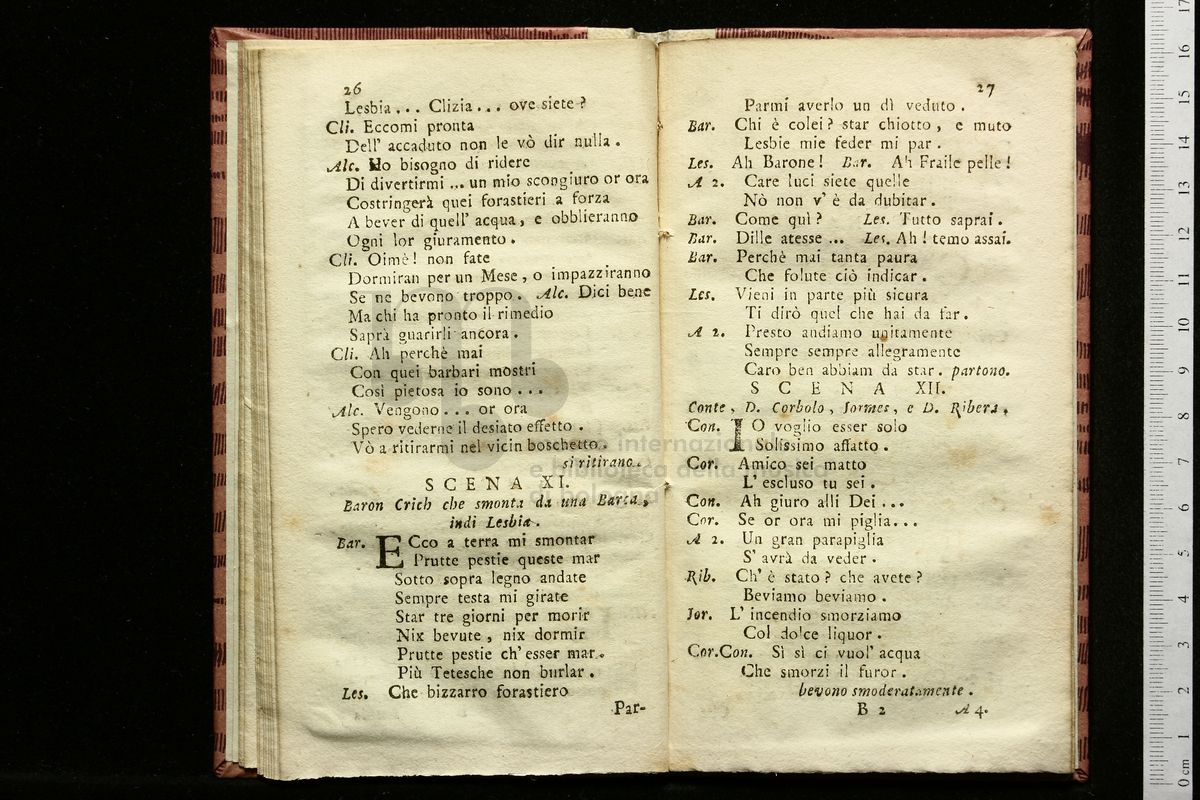 26
Lesbia... Clizia... ove siete?
Cli. Eccomi pronta
Dell' accaduto non le vò dir nulla.
Alc. Ho bisogno di ridere
Di divertirmi ... un mio scongiuro or ora
Costringerà quei forastieri a forza
A bever di quell' acqua, e obblieranno
Ogni lor giuramento.
Cli. Oimè! non fate
Dormiran per un Mese, o impazziranno
Se ne bevono troppo. Alc. Dici bene
Ma chi ha pronto il rimedio
Saprà guarirli ancora.
Cli. Ah perchè mai
Con quei barbari mostri
Così pietosa io sono...
Alc. Vengono... or ora
Spero vederne il desiato effetto.
Vò a ritirarmi nel vicin boschetto.
si ritirano.
SCENA XI.
Baron Crich che smonta da una Barca,
indi Lesbia.
Bar. ECco a terra mi smontar
Prutte pestie queste mar
Sotto sopra legno andate
Sempre testa mi girate
Star tre giorni per morir
Nix bevute, nix dormir
Prutte pestie ch' esser mar.
Più Tetesche non burlar.
Les. Che bizzarro forastiero
Par-
27
Parmi averlo un dì veduto.
Bar. Chi è colei? star chiotto, e muto
Lesbie mie feder mi par.
Les. Ah Barone! Bar. Ah Fraile pelle!
A 2. Care luci siete quelle
Nò non v' è da dubitar.
Bar. Come quì? Les. Tutto saprai.
Bar. Dille atesse ... Les. Ah! temo assai.
Bar. Perchè mai tanta paura
Che folute ciò indicar.
Les. Vieni in parte più sicura
Ti dirò quel che hai da far.
A 2. Presto andiamo unitamente
Sempre sempre allegramente
Caro ben abbiam da star. partono.
SCENA XII.
Conte, D. Corbolo, Jormes, e D. Ribera.
Con. IO voglio esser solo
Solissimo affatto.
Cor. Amico sei matto
L' escluso tu sei.
Con. Ah giuro alli Dei...
Cor. Se or ora mi piglia...
A 2. Un gran parapiglia
S' avrà da veder.
Rib. Ch' è stato? che avete?
Beviamo beviamo.
Jor. L' incendio smorziamo
Col dolce liquor.
Cor.Con. Sì sì ci vuol' acqua
Che smorzi il furor.
bevono smoderatamente.
B 2 A 4.